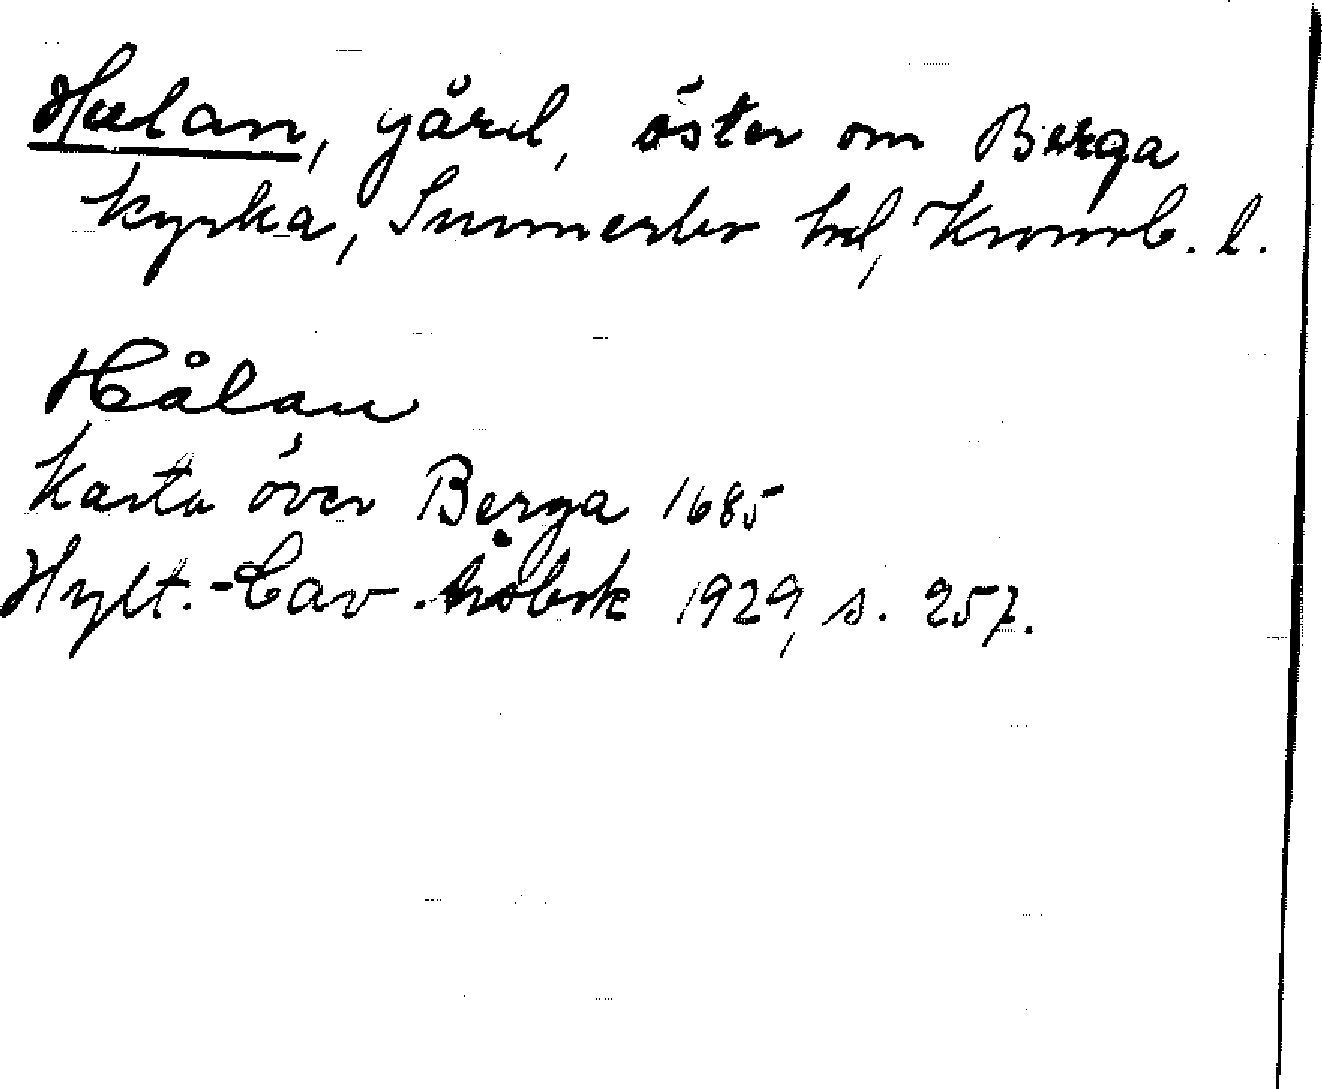 Halan, gård, öster om Berga
kyrka, Sunnerbo hd, Kronob. l.
Hålan
Karta över Berga 1685
Hylt.-Cav. årsbok 1929, s. 257.